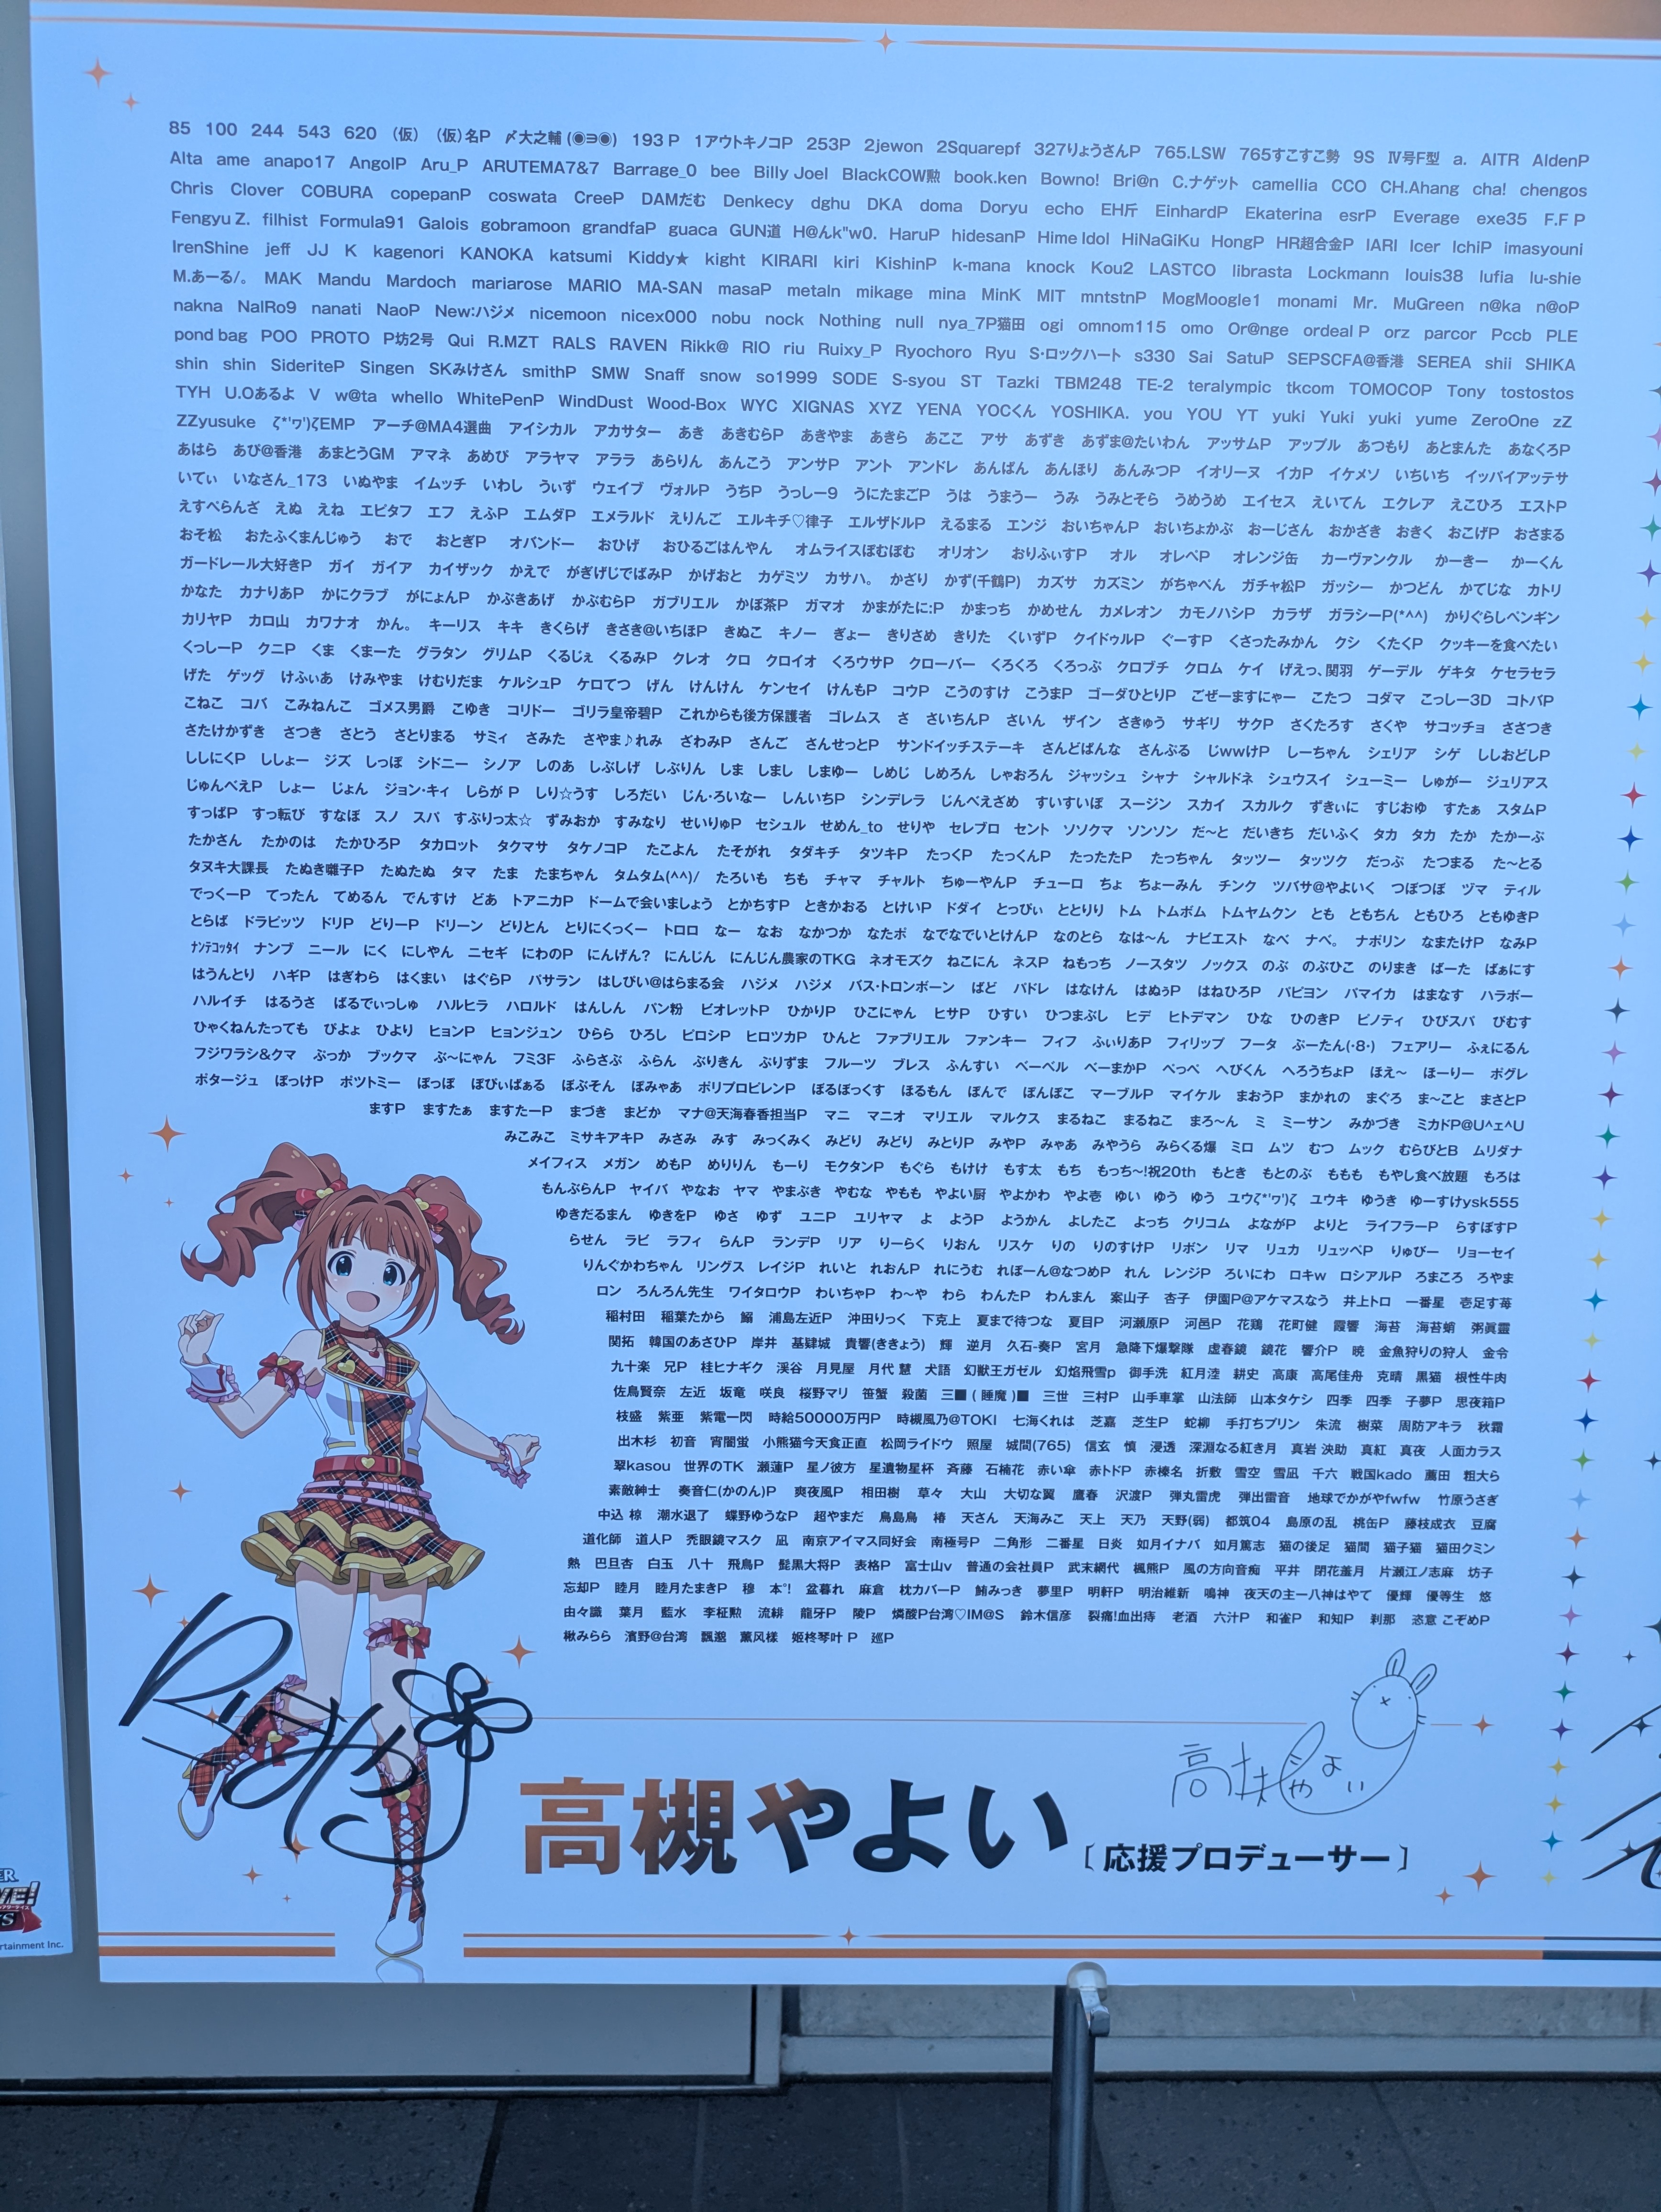 85 100 244 543 620 （仮） （仮）名P 〆大之輔 (◉∋◉) 193 P 1アウトキノコP 253P 2jewon 2Squarepf 327りょうさんP 765.LSW 765すこすこ勢 9S Ⅳ号F型 a. AITR AldenP
Alta ame anapo17 AngolP Aru_P ARUTEMA7&7 Barrage_0 bee Billy Joel BlackCOW勲 book.ken Bowno! Bri@n C.ナゲット camellia CCO CH.Ahang cha! chengos
Chris Clover COBURA copepanP coswata CreeP DAMだむ Denkecy dghu DKA doma Doryu echo EH斤 EinhardP Ekaterina esrP Everage exe35 F.F P
Fengyu Z. filhist Formula91 Galois gobramoon grandfaP guaca GUN道 H@んk"w0. HaruP hidesanP Hime Idol HiNaGiKu HongP HR超合金P IARI Icer IchiP imasyouni
IrenShine jeff JJ K kagenori KANOKA katsumi Kiddy★ kight KIRARI kiri KishinP k-mana knock Kou2 LASTCO librasta Lockmann louis38 lufia lu-shie
M.あーる/。 MAK Mandu Mardoch mariarose MARIO MA-SAN masaP metaln mikage mina MinK MIT mntstnP MogMoogle1 monami Mr. MuGreen n@ka n@oP
nakna NalRo9 nanati NaoP New:ハジメ nicemoon nicex000 nobu nock Nothing null nya_7P猫田 ogi omnom115 omo Or@nge ordeal P orz parcor Pccb PLE
pond bag POO PROTO P坊2号 Qui R.MZT RALS RAVEN Rikk@ RIO riu Ruixy_P Ryochoro Ryu S・ロックハート s330 Sai SatuP SEPSCFA@香港 SEREA shii SHIKA
shin shin SideriteP Singen SKみけさん smithP SMW Snaff snow so1999 SODE S-syou ST Tazki TBM248 TE-2 teralympic tkcom TOMOCOP Tony tostostos
TYH U.Oあるよ V w@ta whello WhitePenP WindDust Wood-Box WYC XIGNAS XYZ YENA YOCくん YOSHIKA. you YOU YT yuki Yuki yuki yume ZeroOne zZ
ZZyusuke ζ*'ヮ')ζEMP アーチ@MA4選曲 アイシカル アカサター あき あきむらP あきやま あきら あここ アサ あずき あずま@たいわん アッサムP アップル あつもり あとまんた あなくろP
あはら あび@香港 あまとうGM アマネ あめび アラヤマ アララ あらりん あんこう アンサP アント アンドレ あんぱん あんほり あんみつP イオリーヌ イカP イケメソ いちいち イッパイアッテサ
いてぃ いなさん_173 いぬやま イムッチ いわし うぃず ウェイブ ヴォルP うちP うっしー9 うにたまごP うは うまうー うみ うみとそら うめうめ エイセス えいてん エクレア えこひろ エストP
えすぺらんざ えぬ えね エピタフ エフ えふP エムダP エメラルド えりんご エルキチ♡律子 エルザドルP えるまる エンジ おいちゃんP おいちょかぶ おーじさん おかざき おきく おこげP おさまる
おそ松 おたふくまんじゅう おで おとぎP オバンドー おひげ おひるごはんやん オムライスぽむぽむ オリオン おりふぃすP オル オレペP オレンジ缶 カーヴァンクル かーきー かーくん
ガードレール大好きP ガイ ガイア カイザック かえで がぎげじでばみP かげおと カゲミツ カサハ。 かざり かず(千鶴P) カズサ カズミン がちゃぺん ガチャ松P ガッシー かつどん かてじな カトリ
かなた カナりあP かにクラブ がにょんP かぶきあげ かぶむらP ガブリエル かぼ茶P ガマオ かまがたに:P かまっち かめせん カメレオン カモノハシP カラザ ガラシーP(*^^) かりぐらしペンギン
カリヤP カロ山 カワナオ かん。 キーリス キキ きくらげ きさき@いちほP きぬこ キノー ぎょー きりさめ きりた くいずP クイドゥルP ぐーすP くさったみかん クシ くたくP クッキーを食べたい
くっしーP クニP くま くまーた グラタン グリムP くるじぇ くるみP クレオ クロ クロイオ くろウサP クローバー くろくろ くろっぷ クロブチ クロム ケイ げえっ、関羽 ゲーデル ゲキタ ケセラセラ
げた ゲッグ けふぃあ けみやま けむりだま ケルシュP ケロてつ げん けんけん ケンセイ けんもP コウP こうのすけ こうまP ゴーダひとりP ごぜーますにゃー こたつ コダマ こっしー3D コトバP
こねこ コバ こみねんこ ゴメス男爵 こゆき コリドー ゴリラ皇帝碧P これからも後方保護者 ゴレムス さ さいちんP さいん ザイン さきゅう サギリ サクP さくたろす さくや サコッチョ ささつき
さたけかずき さつき さとう さとりまる サミィ さみた さやま♪れみ ざわみP さんご さんせっとP サンドイッチステーキ さんどばんな さんぶる じwwけP しーちゃん シェリア シゲ ししおどしP
ししにくP ししょー ジズ しっぽ シドニー シノア しのあ しぶしげ しぶりん しま しまし しまゆー しめじ しめろん しゃおろん ジャッシュ シャナ シャルドネ シュウスイ シューミー しゅがー ジュリアス
じゅんべえP しょー じょん ジョン・キィ しらが P しり☆うす しろだい じん・ろいなー しんいちP シンデレラ じんべえざめ すいすいぼ スージン スカイ スカルク ずきぃに すじおゆ すたぁ スタムP
すっぱP すっ転び すなぼ スノ スパ すぶりっ太☆ ずみおか すみなり せいりゅP セシュル せめん_to せりや セレブロ セント ソソクマ ソンソン だ〜と だいきち だいふく タカ タカ たか たかーぶ
たかさん たかのは たかひろP タカロット タクマサ タケノコP たこよん たそがれ タダキチ タツキP たっくP たっくんP たったたP たっちゃん タッツー タッツク だっぷ たつまる た〜とる
タヌキ大課長 たぬき囃子P たぬたぬ タマ たま たまちゃん タムタム(^^)/ たろいも ちも チャマ チャルト ちゅーやんP チューロ ちょ ちょーみん チンク ツバサ@やよいく つぼつぼ ヅマ ティル
でっくーP てったん てめるん でんすけ どあ トアニカP ドームで会いましょう とかちすP ときかおる とけいP ドダイ とっぴぃ ととりり トム トムボム トムヤムクン とも ともちん ともひろ ともゆきP
とらば ドラピッツ ドリP どりーP ドリーン どりとん とりにくっくー トロロ なー なお なかつか なたボ なでなでいとけんP なのとら なは〜ん ナビエスト なべ ナベ。 ナポリン なまたけP なみP
ﾅﾝﾃｺｯﾀｲ ナンブ ニール にく にしやん ニセギ にわのP にんげん? にんじん にんじん農家のTKG ネオモズク ねこにん ネスP ねもっち ノースタツ ノックス のぶ のぶひこ のりまき ばーた ばぁにす
はうんとり ハギP はぎわら はくまい はぐらP バサラン はしびい@はらまる会 ハジメ ハジメ バス・トロンボーン ぱど パドレ はなけん はぬぅP はねひろP パピヨン パマイカ はまなす ハラボー
ハルイチ はるうさ ぱるでぃっしゅ ハルヒラ ハロルド はんしん パン粉 ビオレットP ひかりP ひこにゃん ヒサP ひすい ひつまぶし ヒデ ヒトデマン ひな ひのきP ピノティ ひびスパ びむす
ひゃくねんたっても ぴよょ ひより ヒョンP ヒョンジュン ひらら ひろし ピロシP ヒロツカP ひんと ファブリエル ファンキー フィフ ふぃりあP フィリップ フータ ぶーたん(・8・) フェアリー ふぇにるん
フジワラシ&クマ ぷっか ブックマ ぶ〜にゃん フミ3F ふらさぶ ふらん ぷりきん ぷりずま フルーツ ブレス ふんすい べーベル べーまかP べっぺ へびくん へろうちょP ほえ〜 ほーりー ポグレ
ポタージュ ぼっけP ポットミー ぽっぽ ぽぴぃぱぁる ぽぷそん ぽみゃあ ポリプロピレンP ぽるぽっくす ほるもん ぽんで ぽんぽこ マーブルP マイケル まおうP まかれの まぐろ ま〜こと まさとP
ますP ますたぁ ますたーP まづき まどか マナ@天海春香担当P マニ マニオ マリエル マルクス まるねこ まるねこ まろ〜ん ミ ミーサン みかづき ミカドP@U^ェ^U
みこみこ ミサキアキP みさみ みす みっくみく みどり みどり みとりP みやP みゃあ みやうら みらくる爆 ミロ ムツ むつ ムック むらびとB ムリダナ
メイフィス メガン めもP めりりん もーり モクタンP もぐら もけけ もす太 もち もっち〜!祝20th もとき もとのぶ ももも もやし食べ放題 もろは
もんぶらんP ヤイバ やなお ヤマ やまぶき やむな やもも やよい厨 やよかわ やよ壱 ゆい ゆう ゆう ユウζ*'ヮ')ζ ユウキ ゆうき ゆーすけysk555
ゆきだるまん ゆきをP ゆさ ゆず ユニP ユリヤマ よ ようP ようかん よしたこ よっち クリコム よながP よりと ライフラーP らすぼすP
らせん ラビ ラフィ らんP ランデP リア りーらく りおん リスケ りの りのすけP リボン リマ リュカ リュッペP りゅびー リョーセイ
りんぐかわちゃん リングス レイジP れいと れおんP れにうむ れぼーん@なつめP れん レンジP ろいにわ ロキw ロシアルP ろまころ ろやま
ロン ろんろん先生 ワイタロウP わいちゃP わ〜や わら わんたP わんまん 案山子 杏子 伊園P@アケマスなう 井上トロ 一番星 壱足す苺
稲村田 稲葉たから 鰯 浦島左近P 沖田りっく 下克上 夏まで待つな 夏目P 河瀬原P 河邑P 花鶏 花町健 霞響 海苔 海苔蛸 粥眞霊
関拓 韓国のあさひP 岸井 基肄城 貴響(ききょう) 輝 逆月 久石-奏P 宮月 急降下爆撃隊 虚春鏡 鏡花 響介P 暁 金魚狩りの狩人 金令
九十楽 兄P 桂ヒナギク 渓谷 月見屋 月代 慧 犬語 幻獣王ガゼル 幻焰飛雪p 御手洗 紅月淕 耕史 高康 高尾佳舟 克晴 黒猫 根性牛肉
佐鳥賢奈 左近 坂竜 咲良 桜野マリ 笹蟹 殺菌 三■ ( 睡魔 )■ 三世 三村P 山手車掌 山法師 山本タケシ 四季 四季 子夢P 思夜箱P
枝盛 紫亜 紫電一閃 時給50000万円P 時槻風乃@TOKI 七海くれは 芝嘉 芝生P 蛇柳 手打ちプリン 朱流 樹菜 周防アキラ 秋霜
出木杉 初音 宵闇蛍 小熊猫今天食正直 松岡ライドウ 照屋 城間(765) 信玄 慎 浸透 深淵なる紅き月 真岩 泱助 真紅 真夜 人面カラス
翠kasou 世界のTK 瀬蓮P 星ノ彼方 星遺物星杯 斉藤 石楠花 赤い傘 赤トドP 赤榛名 折敷 雪空 雪凪 千六 戦国kado 薦田 粗大ら
素敵紳士 奏音仁(かのん)P 爽夜風P 相田樹 草々 大山 大切な翼 鷹春 沢渡P 弾丸雷虎 弾出雷音 地球でかがやfwfw 竹原うさぎ
中込 椋 潮水退了 蝶野ゆうなP 超やまだ 鳥島鳥 椿 天さん 天海みこ 天上 天乃 天野(弱) 都筑04 島原の乱 桃缶P 藤枝成衣 豆腐
道化師 道人P 禿眼鏡マスク 凪 南京アイマス同好会 南極号P 二角形 二番星 日炎 如月イナバ 如月篤志 猫の後足 猫間 猫子猫 猫田クミン
熱 巴旦杏 白玉 八十 飛鳥P 髭黒大将P 表格P 富士山v 普通の会社員P 武末網代 楓熊P 風の方向音痴 平井 閉花羞月 片瀬江ノ志麻 坊子
忘却P 睦月 睦月たまきP 穆 本゜! 盆暮れ 麻倉 枕カバーP 鮪みっき 夢里P 明軒P 明治維新 鳴神 夜天の主一八神はやて 優輝 優等生 悠
由々識 葉月 藍水 李柾勲 流緋 龍牙P 陵P 燐酸P台湾♡IM@S 鈴木信彦 裂痛!血出痔 老酒 六汁P 和雀P 和知P 刹那 恣意 こぞめP
楸みらら 濱野@台湾 飄邈 薫风様 姫柊琴叶 P 巡P
高槻やよい
高槻やよい
〔応援プロデューサー〕
rtainment Inc.